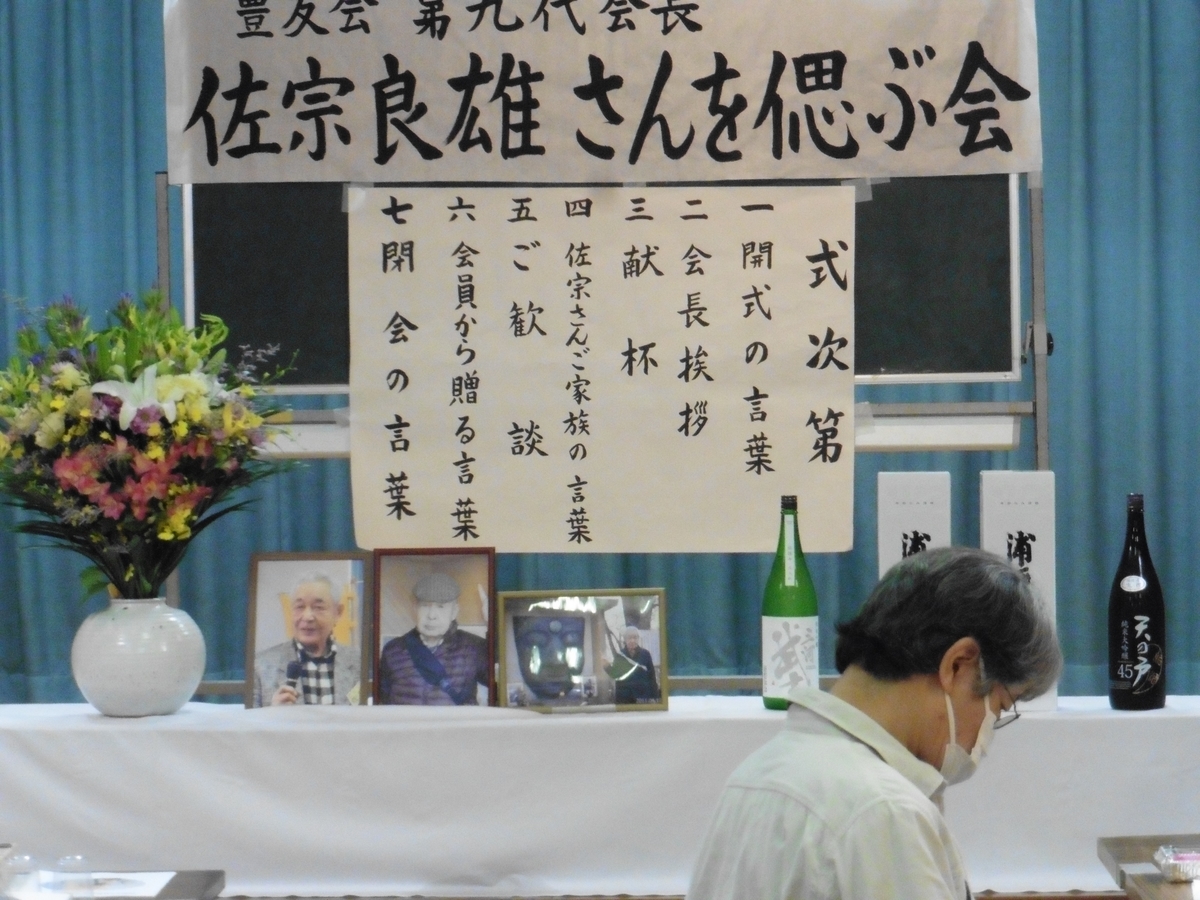 豊友会 第九代会長
佐宗良雄さんを偲ぶ会
式次第
一 開式の言葉
二 会長挨拶
三 献杯
四 佐宗さんご家族の言葉
五 ご歓談
六 会員から贈る言葉
七 閉会の言葉
浦
浦
天の戸
純米大吟醸
45